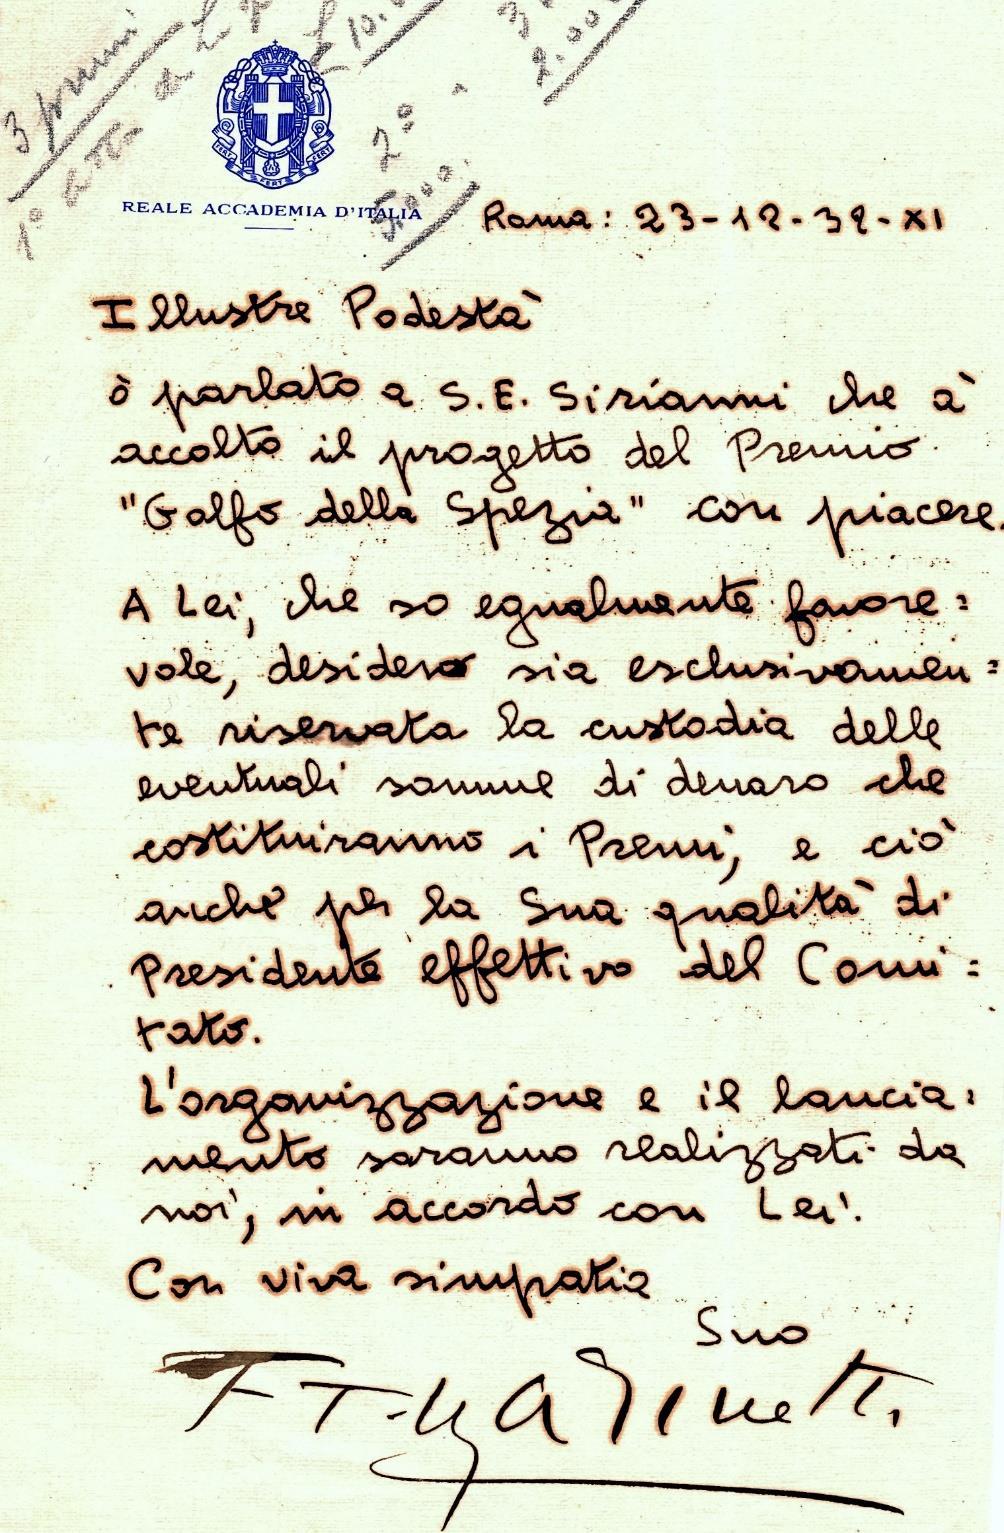 3 premi
1°
di L
£ 10.0
2°
5.000.
3
2.000
FERT FERT FERT
REALE ACCADEMIA D'ITALIA
Roma: 23-12-32-XI
Illustre Podestà
ò parlato a S.E. Sirianni che à
accolto il progetto del Premio
"Golfo della Spezia" con piacere.
A Lei, che so egualmente favore=
vole, desidero sia esclusivamen=
te riservata la custodia delle
eventuali somme di denaro che
costituiranno i Premi, e ciò
anche per la Sua qualità di
Presidente effettivo del Comi=
tato.
L'organizzazione e il lancia=
mento saranno realizzati da
noi, in accordo con Lei.
Con viva simpatia
Suo
F T Marinetti